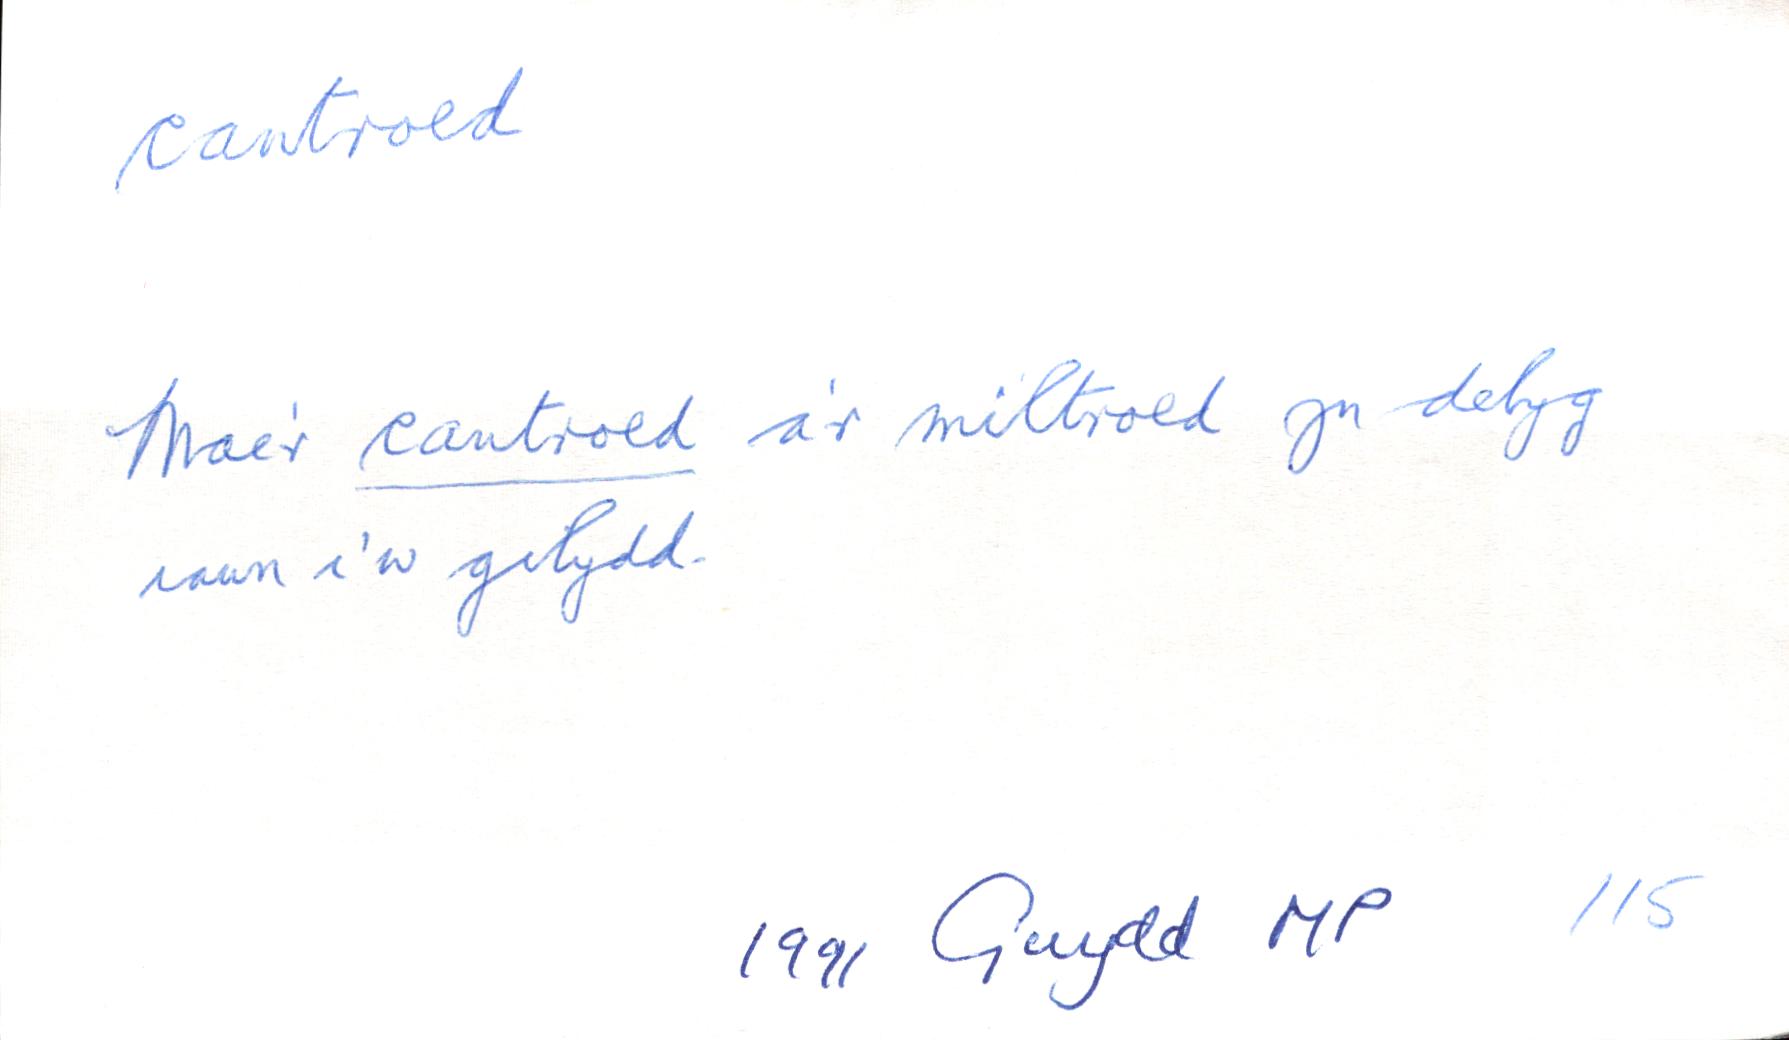 cantroed
Mae'r cantroed a'r miltroed yn debyg
iawn i'w gilydd.
1991 Gwydd MP 115